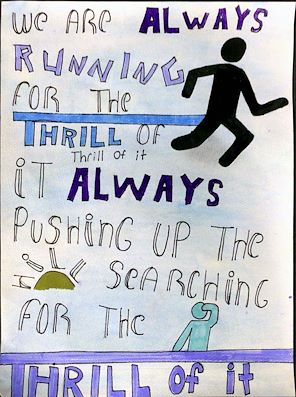 WE ARE ALWAYS
RUNNING
FOR THE
THRILL OF
Thrill of it
iT ALWAYS
PUSHING UP THE
HILL SEARCHING
FOR THE
THRILL OF it